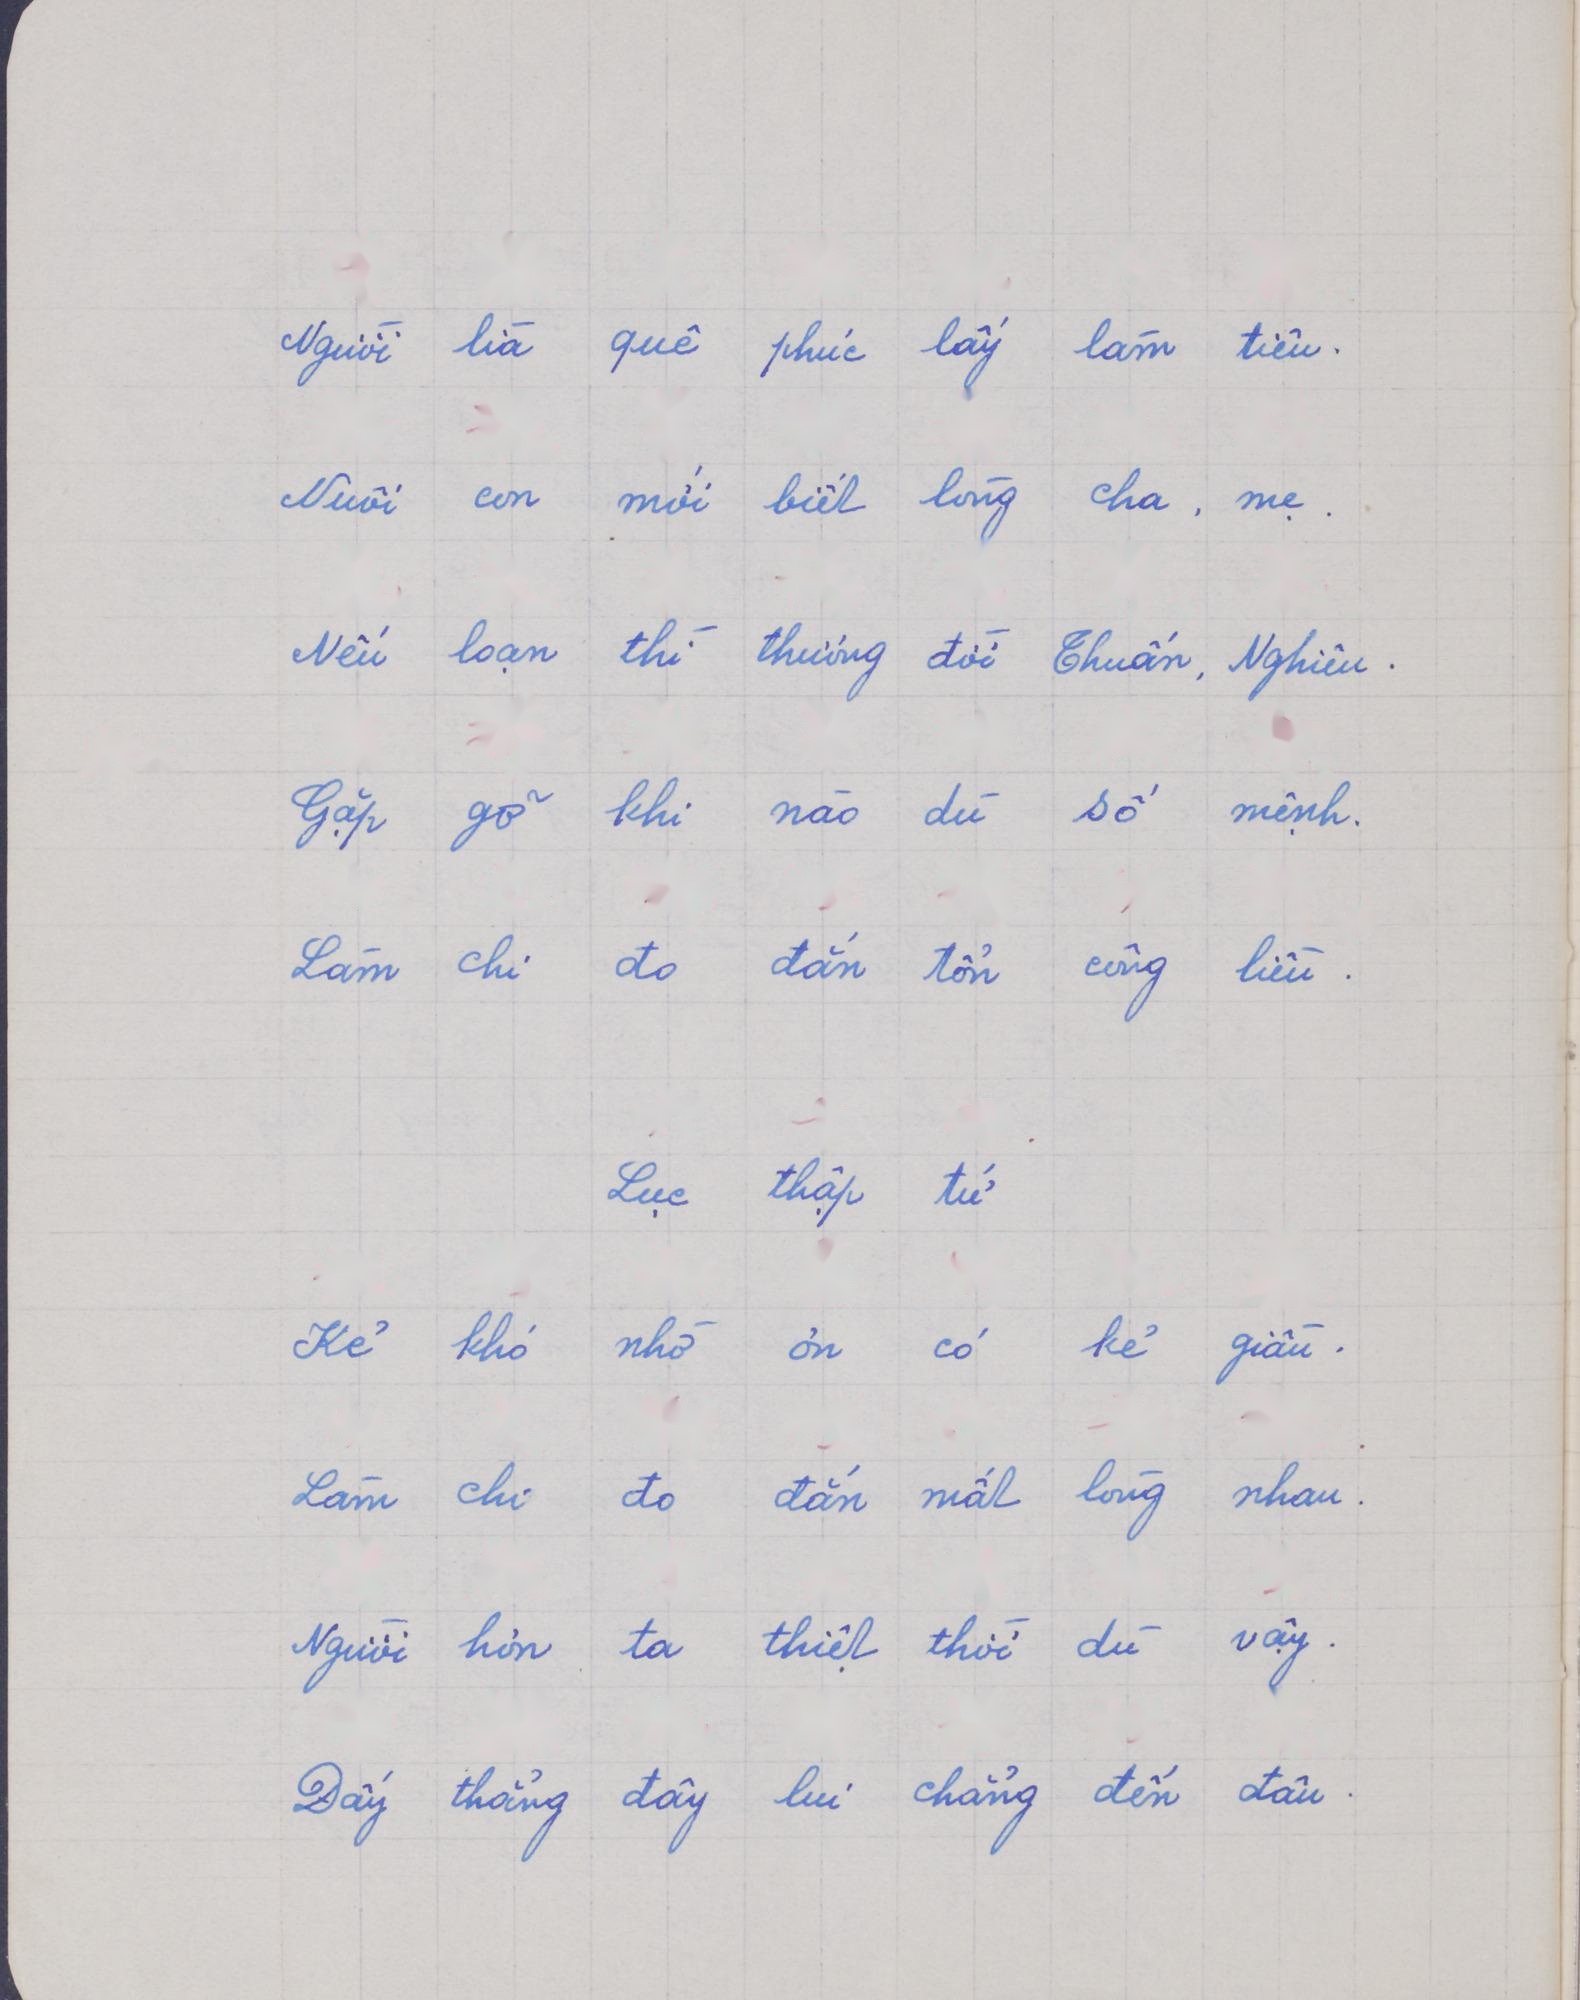 Người lìa quê phúc lấy làm tiêu.
Nuôi con mới biết lòng cha, mẹ.
Nếu loạn thì thương đời Thuấn, Nghiêu.
Gặp gỡ khi nào dù số mệnh.
Làm chi đo đắn tổn công liều.
Lục thập tứ
Kẻ khó nhờ ơn có kẻ giầu.
Làm chi đo đắn mất lòng nhau.
Người hơn ta thiệt thòi dù vậy.
Đấy thẳng đây lui chẳng đến đâu.